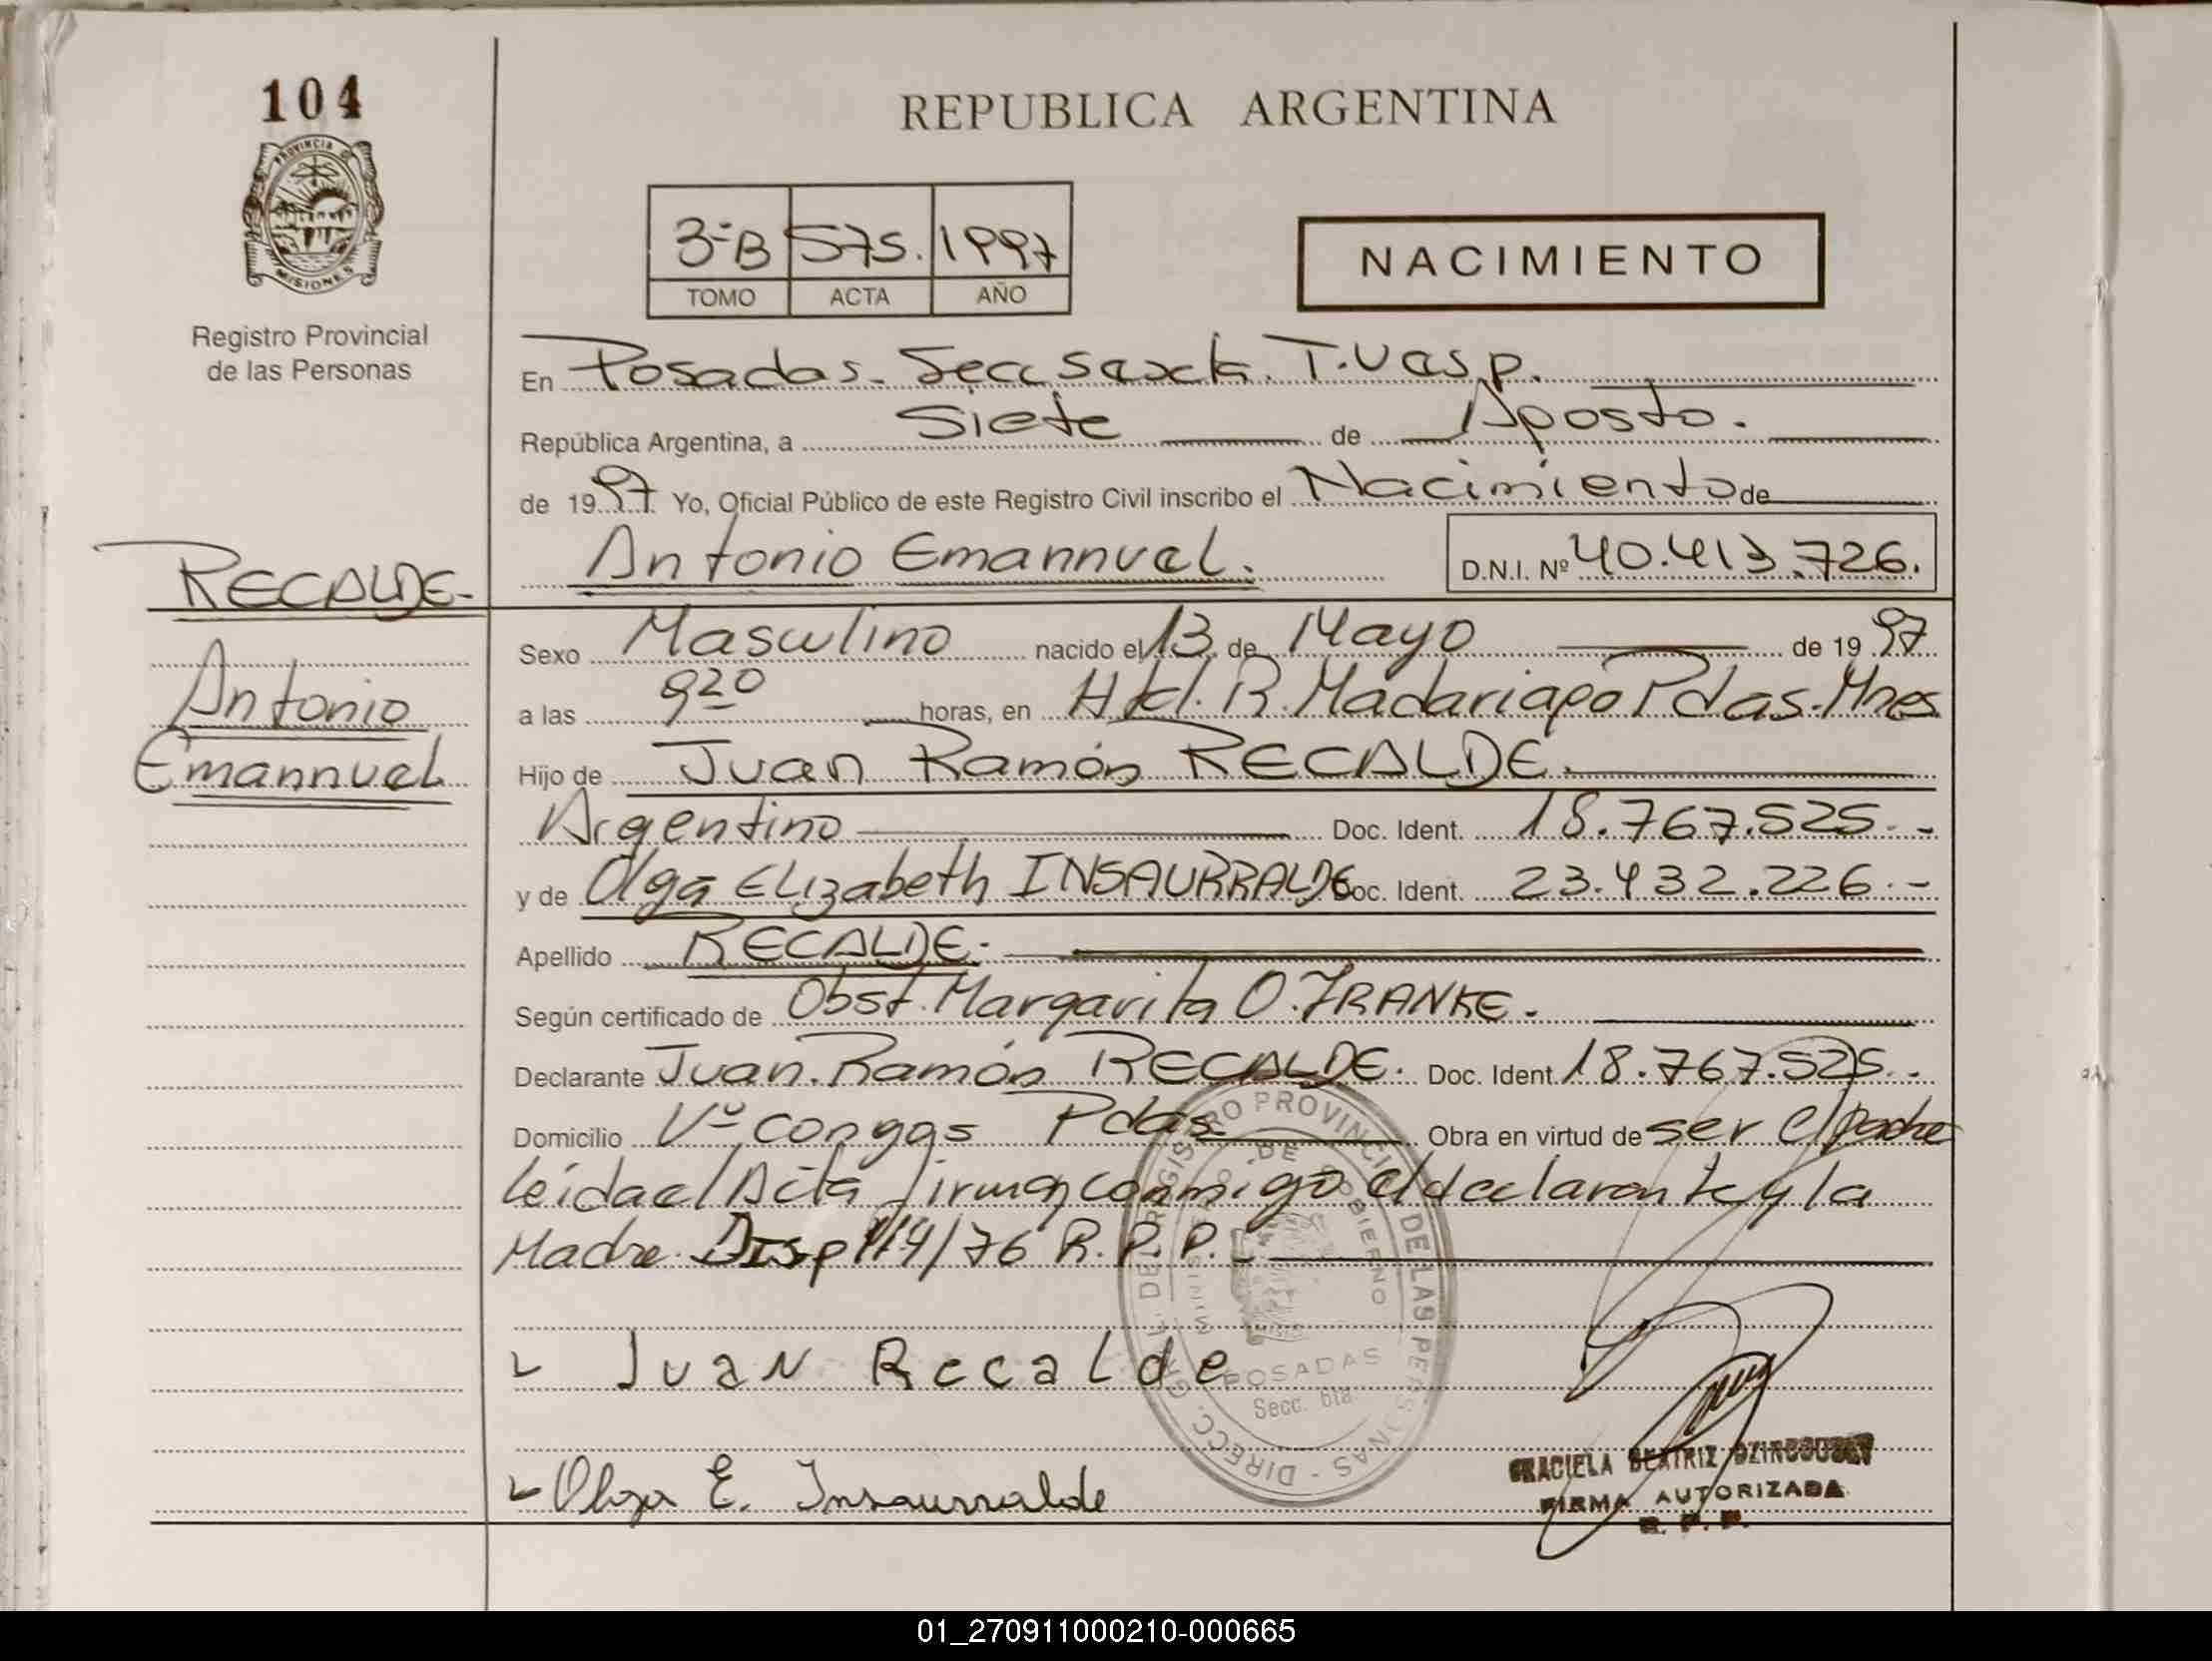 104
PROVINCIA D
MISIONES
Registro Provincial
de las Personas
REPUBLICA ARGENTINA
3-B 575. 1997
TOMO ACTA AÑO
NACIMIENTO
En Posadas. Secc Sexta. T. Vesp.
República Argentina, a Siete de Agosto.
de 1997 Yo, Oficial Público de este Registro Civil inscribo el Nacimiento de
Antonio Emannuel. D.N.I. Nº 40.413.726.
RECALDE-
Antonio
Emannuel
Sexo Masculino nacido el 13 de Mayo de 1997
a las 9 20 horas, en Htal. R. Madariaga Pdas. Mnes
Hijo de Juan Ramón RECALDE.
Argentino Doc. Ident. 18.767.525.-
y de Olga Elizabeth INSAURRALDE Doc. Ident. 23.432.226.-
Apellido RECALDE.-
Según certificado de Obst. Margarita O. FRANKE.
Declarante Juan Ramón RECALDE. Doc. Ident. 18.767.525.-
Domicilio Vº Congas Pdas Obra en virtud de ser el padre
leida el Acta firman conmigo el declarante y la
Madre. Disp 114/76 R.P.P.
DIRECC. GRAL. DE REGISTRO PROVINCIAL DE LAS PERSONAS
DE GOBIERNO
POSADAS
Secc. 6ta
Juan Recalde
Olga E. Insaurralde
GRACIELA BEATRIZ
FIRMA AUTORIZADA
R. P. P.
01_270911000210-000665